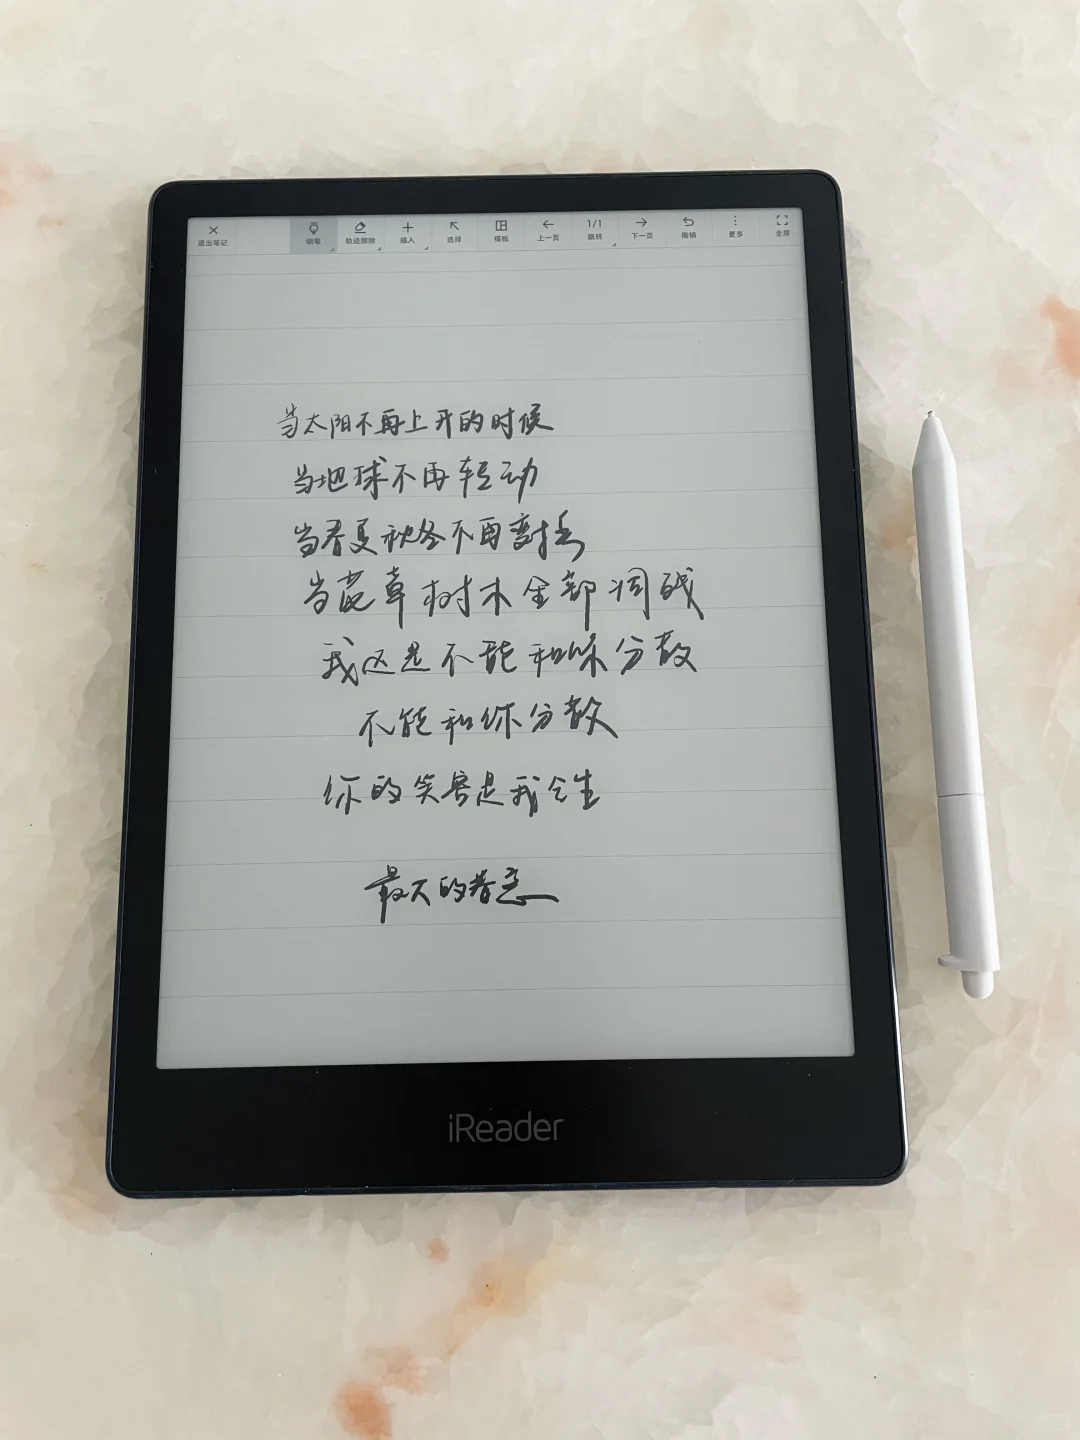 退出笔记 钢笔 轨迹擦除 插入 选择 模板 上一页 1/1 跳转 下一页 撤销 更多 全屏
当太阳不再上升的时候
当地球不再转动
当春夏秋冬不再变换
当花草树木全部凋残
我还是不能和你分散
不能和你分散
你的笑容是我今生
最大的眷恋
iReader